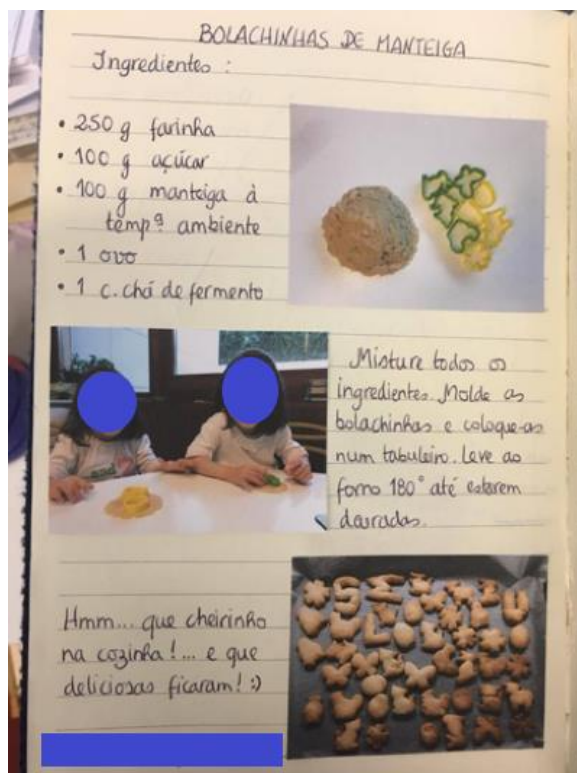 BOLACHINHAS DE MANTEIGA
Ingredientes :
• 250 g farinha
• 100 g açúcar
• 100 g manteiga à
tempª ambiente
• 1 ovo
• 1 c. chá de fermento
Misture todos os
ingredientes. Molde as
bolachinhas e coloque-as
num tabuleiro. Leve ao
forno 180° até estarem
douradas.
Hmm... que cheirinho
na cozinha!... e que
deliciosas ficaram! :)